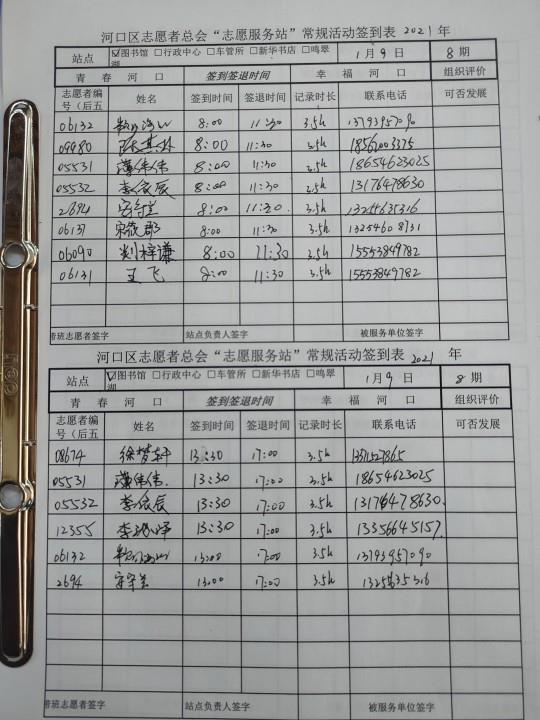 河口区志愿者总会“志愿服务站”常规活动签到表 2021 年
站点 ☑图书馆 □行政中心 □车管所 □新华书店 □鸣翠湖 1月9日 8期
青春河口 签到签退时间 幸福河口 组织评价
志愿者编号（后五 姓名 签到时间 签退时间 记录时长 联系电话 可否发展
06132 8:00 11:30 3.5h 13793957090
09980 8:00 11:30 3.5h
05531 薄伟伟 8:00 11:30 3.5h 18654623025
05532 李俊辰 8:00 11:30 3.5h 13176478630
2694 8:00 11:30 3.5h
06137 宋筱郡 8:00 11:30 3.5h 13254608731
06090 刘梓谦 8:00 11:30 3.5h 15553849782
06131 王飞 8:00 11:30 3.5h 15553849782
带班志愿者签字 站点负责人签字 被服务单位签字
河口区志愿者总会“志愿服务站”常规活动签到表 2021 年
站点 ☑图书馆 □行政中心 □车管所 □新华书店 □鸣翠湖 1月9日 8期
青春河口 签到签退时间 幸福河口 组织评价
志愿者编号（后五 姓名 签到时间 签退时间 记录时长 联系电话 可否发展
08674 徐梦轩 13:30 17:00 3.5h
05531 薄伟伟 13:30 17:00 3.5h 18654623025
05532 李俊辰 13:30 17:00 3.5h 13176478630
12355 13:30 17:00 3.5h 13356645157
06132 13:00 17:00 3.5h 13793957090
2694 13:00 17:00 3.5h
带班志愿者签字 站点负责人签字 被服务单位签字